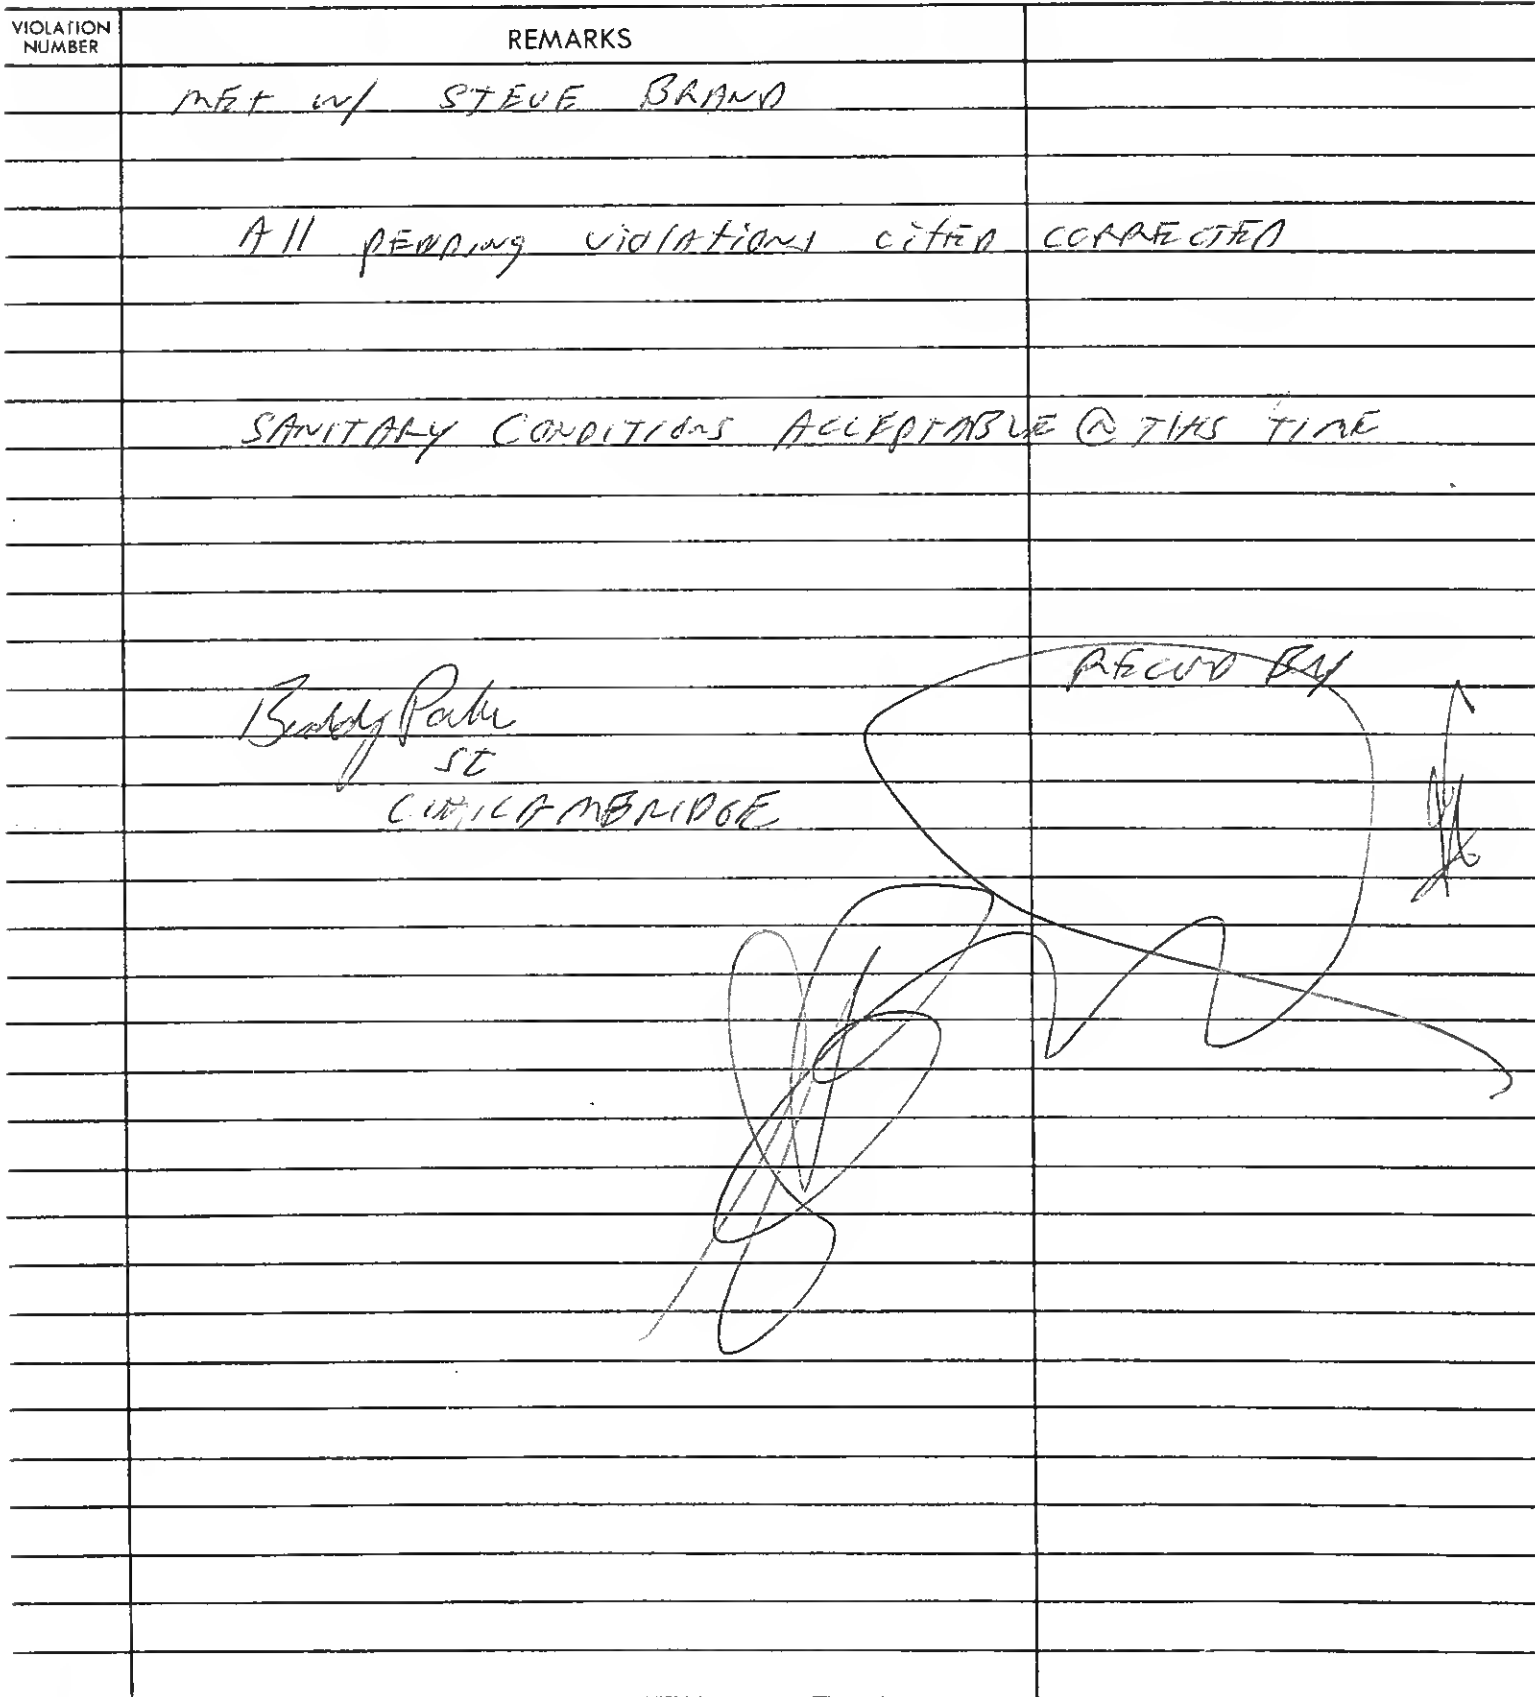 VIOLATION NUMBER
REMARKS
MEt w/ STEVE BRAND
All pENDing violAtions citED CORRECtED
SANITARY CONDITIONS ACCEPTABLE @ THIS TIME
RECVD BY
Buddy
SI
CAMBRIDGE